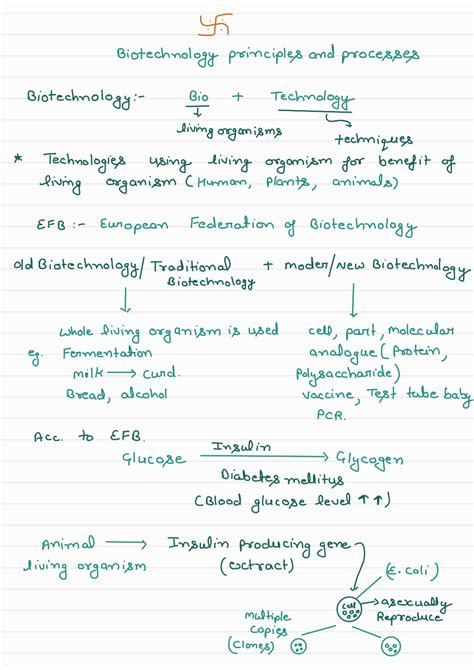 Biotechnology principles and processes
Biotechnology:- Bio + Technology
living organisms
techniques
* Technologies using living organism for benefit of
living organism (Human, Plants, animals)
EFB :- European Federation of Biotechnology
old Biotechnology/Traditional + moder/New Biotechnology
Biotechnology
Whole living organism is used
eg. Fermentation
milk → Curd.
Bread, alcohol
cell, part, molecular
analogue (Protein,
Polysaccharide)
vaccine, Test tube baby
PCR.
Acc. to EFB.
Glucose Insulin → Glycogen
Diabetes mellitus
(Blood glucose level ↑↑)
Animal → Insulin producing gene
living organism (extract)
(E. coli)
cell → asexually
Reproduce
multiple
Copies
(Clones)